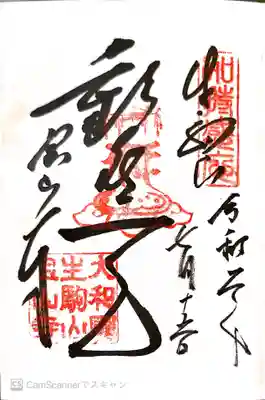 生駒山
令和元年
七月
歓喜天
宝山寺
大和國
生駒山
宝山寺
CS CamScannerでスキャン